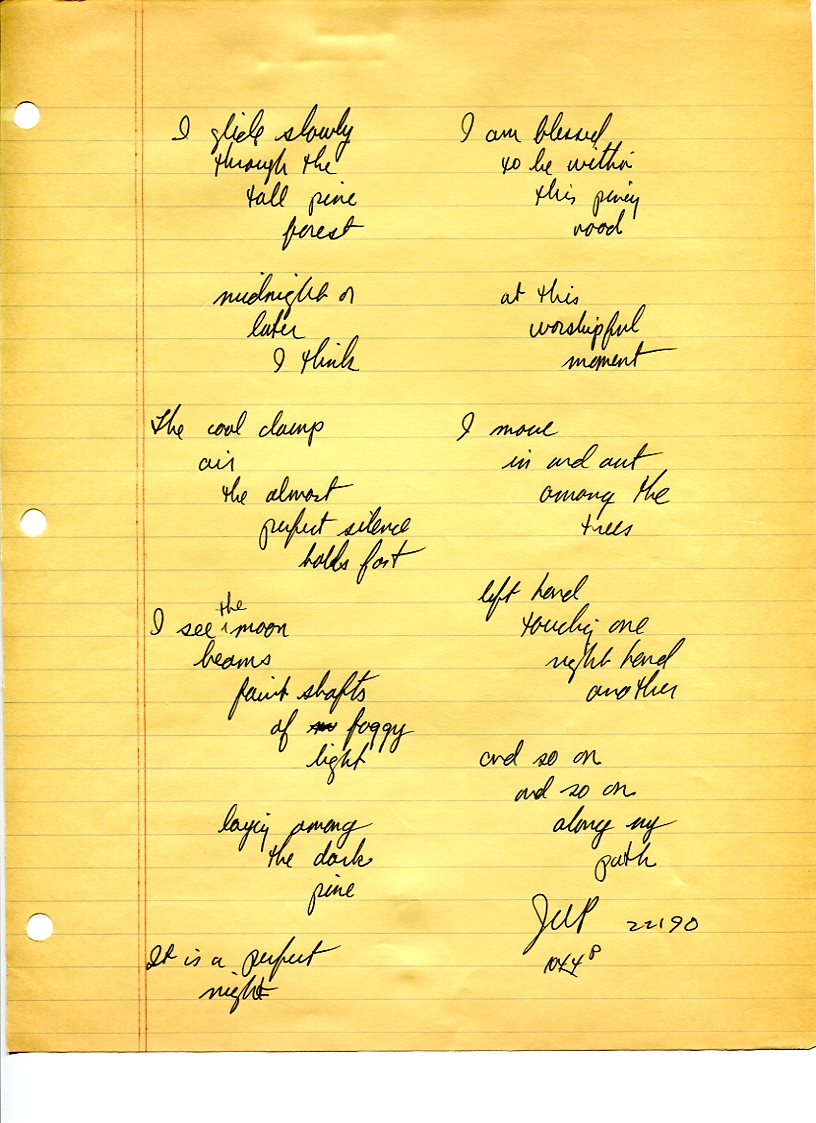 I glide slowly
through the
tall pine
forest
midnight or
later
I think
The cool damp
air
the almost
perfect silence
holds fast
I see the moon
beams
paint shafts
of foggy
light
laying among
the dark
pine
It is a perfect
night
I am blessed
to be within
this piney
wood
at this
worshipful
moment
I move
in and out
among the
trees
left hand
touching one
right hand
another
and so on
and so on
along my
path
22190